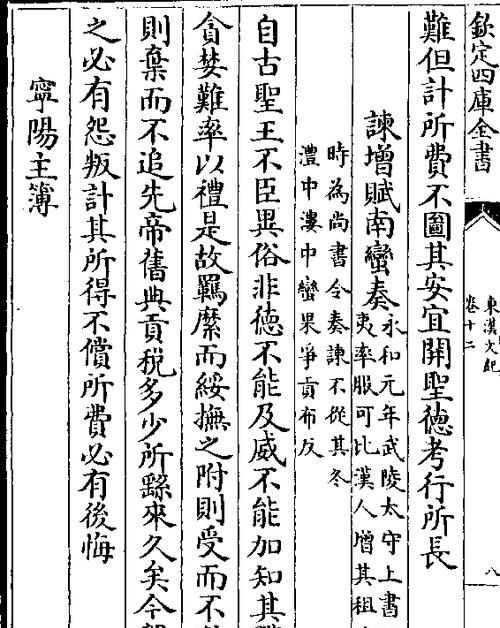 欽定四庫全書
東漢文紀
卷十二
八
難但計所費不圖其安宜開聖德考行所長
諫增賦南蠻奏
永和元年武陵太守上書
夷率服可比漢人增其租
時為尚書令奏諫不從其冬
澧中漊中蠻果爭貢布反
自古聖王不臣異俗非德不能及威不能加知其
貪婪難率以禮是故羈縻而綏撫之附則受而不
則棄而不追先帝舊典貢稅多少所繇來久矣今
之必有怨叛計其所得不償所費必有後悔
寧陽主簿